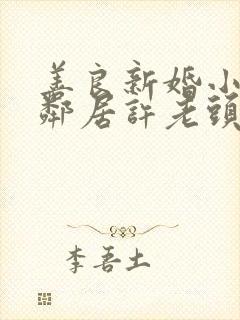 善良新婚小
鄰居許老頭
李吾土